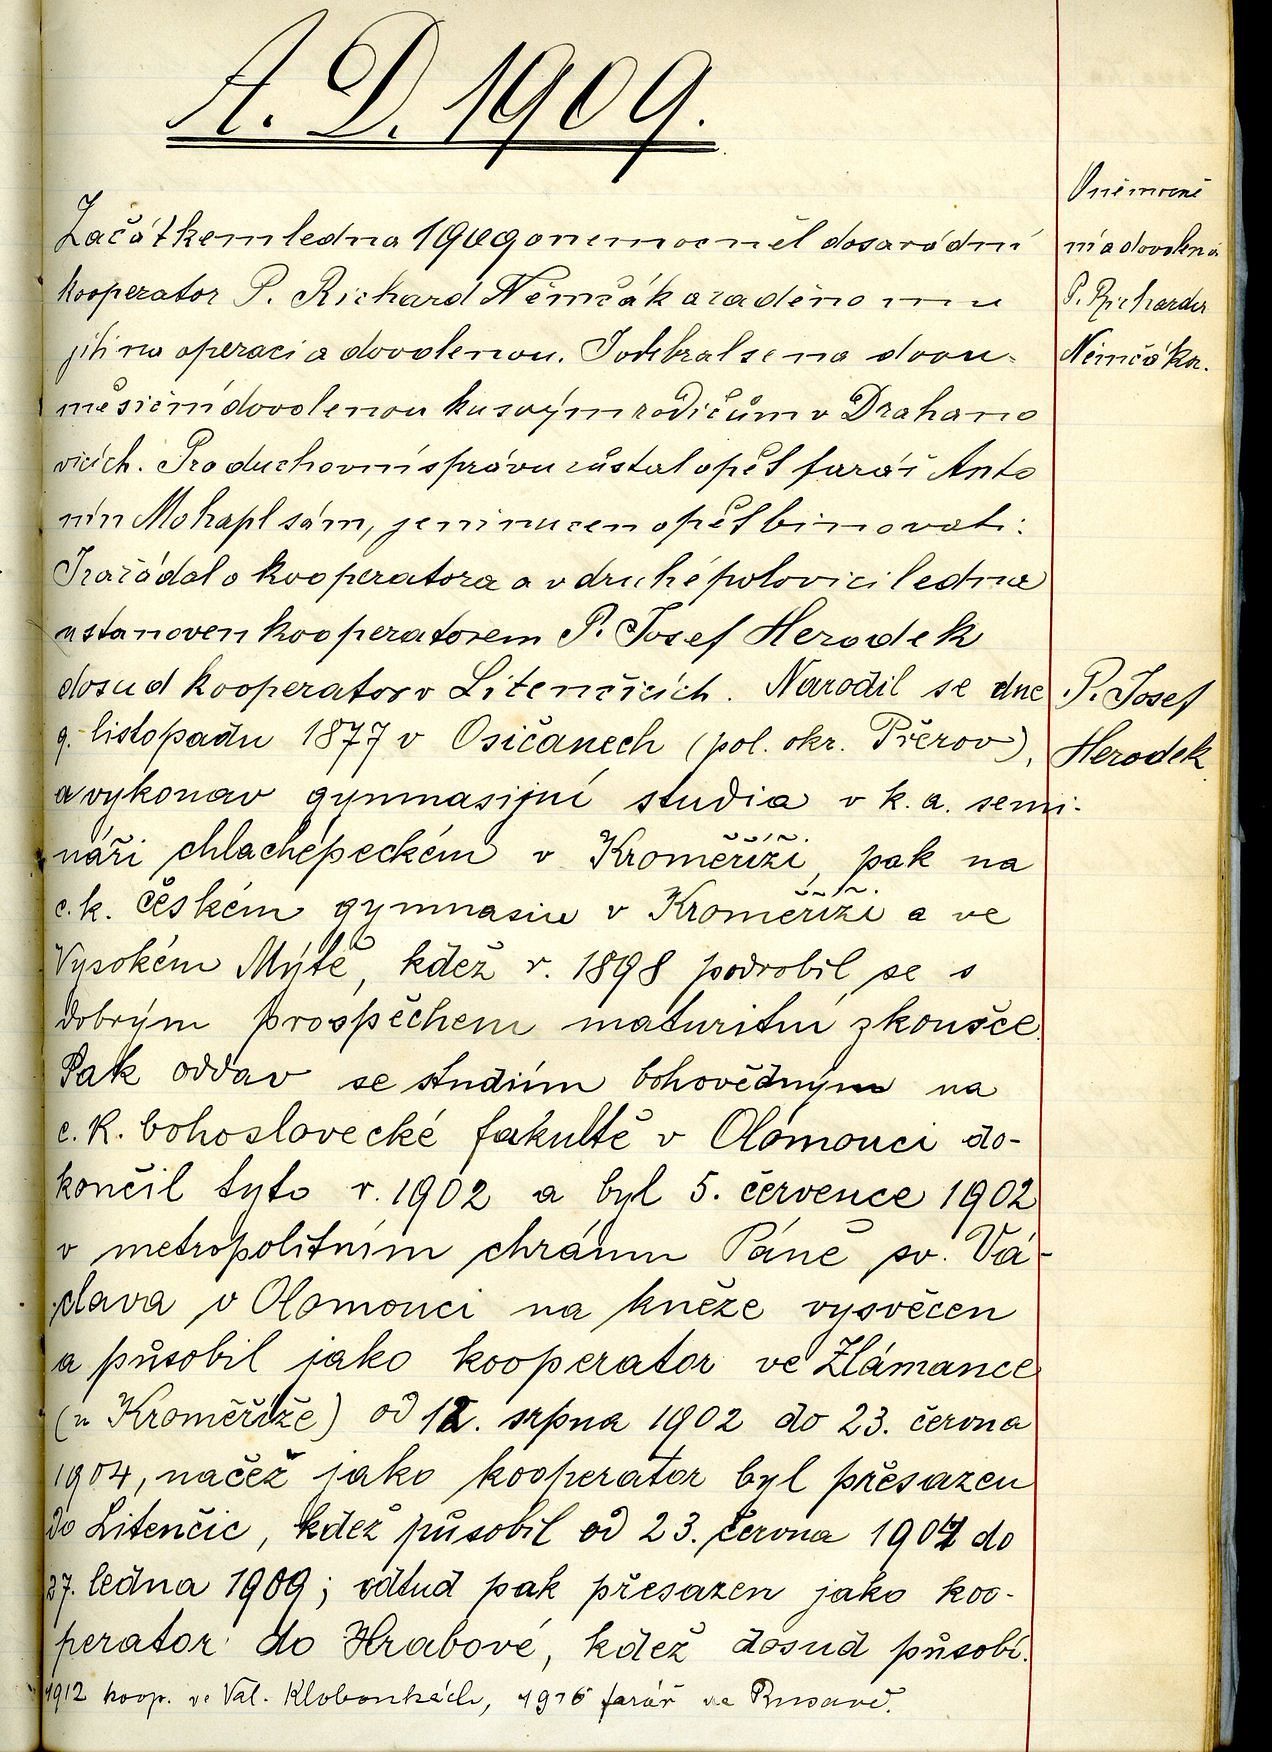 A. D. 1909.
Začátkem ledna 1909 onemocněl dosavádní
kooperator P. Richard Němčák a raděno mu
jíti na operaci a dovolenou. I odebral se na dvou-
měsíční dovolenou ku svým rodičům v Drahano
vicích. Pro duchovní správu zůstal opět farář Anto
nín Mohapl sám, jsa nucen opět binovati.
I zažádal o kooperatora a v druhé polovici ledna
ustanoven kooperatorem P. Josef Herodek
dosud kooperator v Litenčicích. Narodil se dne
9. listopadu 1877 v Osíčanech (pol. okr. Přerov),
a vykonav gymnasijní studia v k. a. semi-
náři chlachepeckém v Kroměříži, pak na
c. k. českém gymnasiu v Kroměříži a ve
Vysokém Mýtě, kdež r. 1898 podrobil se s
dobrým prospěchem maturitní zkoušce.
Pak oddav se studiím bohovědným na
c. k. bohoslovecké fakultě v Olomouci do-
končil tyto r. 1902 a byl 5. července 1902
v metropolitním chrámu Páně sv. Vá-
clava v Olomouci na kněze vysvěcen
a působil jako kooperator ve Zlámance
(u Kroměříže) od 12. srpna 1902 do 23. června
1904, načež jako kooperator byl přesazen
do Litenčic, kdež působil od 23. června 1904 do
27. ledna 1909; odtud pak přesazen jako koo-
perator do Hrabové, kdež dosud působí.
1912 koop. ve Val. Kloboukách, 1916 farář na Rusavě.
Onemocně
ní a dovolená
P. Richarda
Němčáka.
P. Josef
Herodek